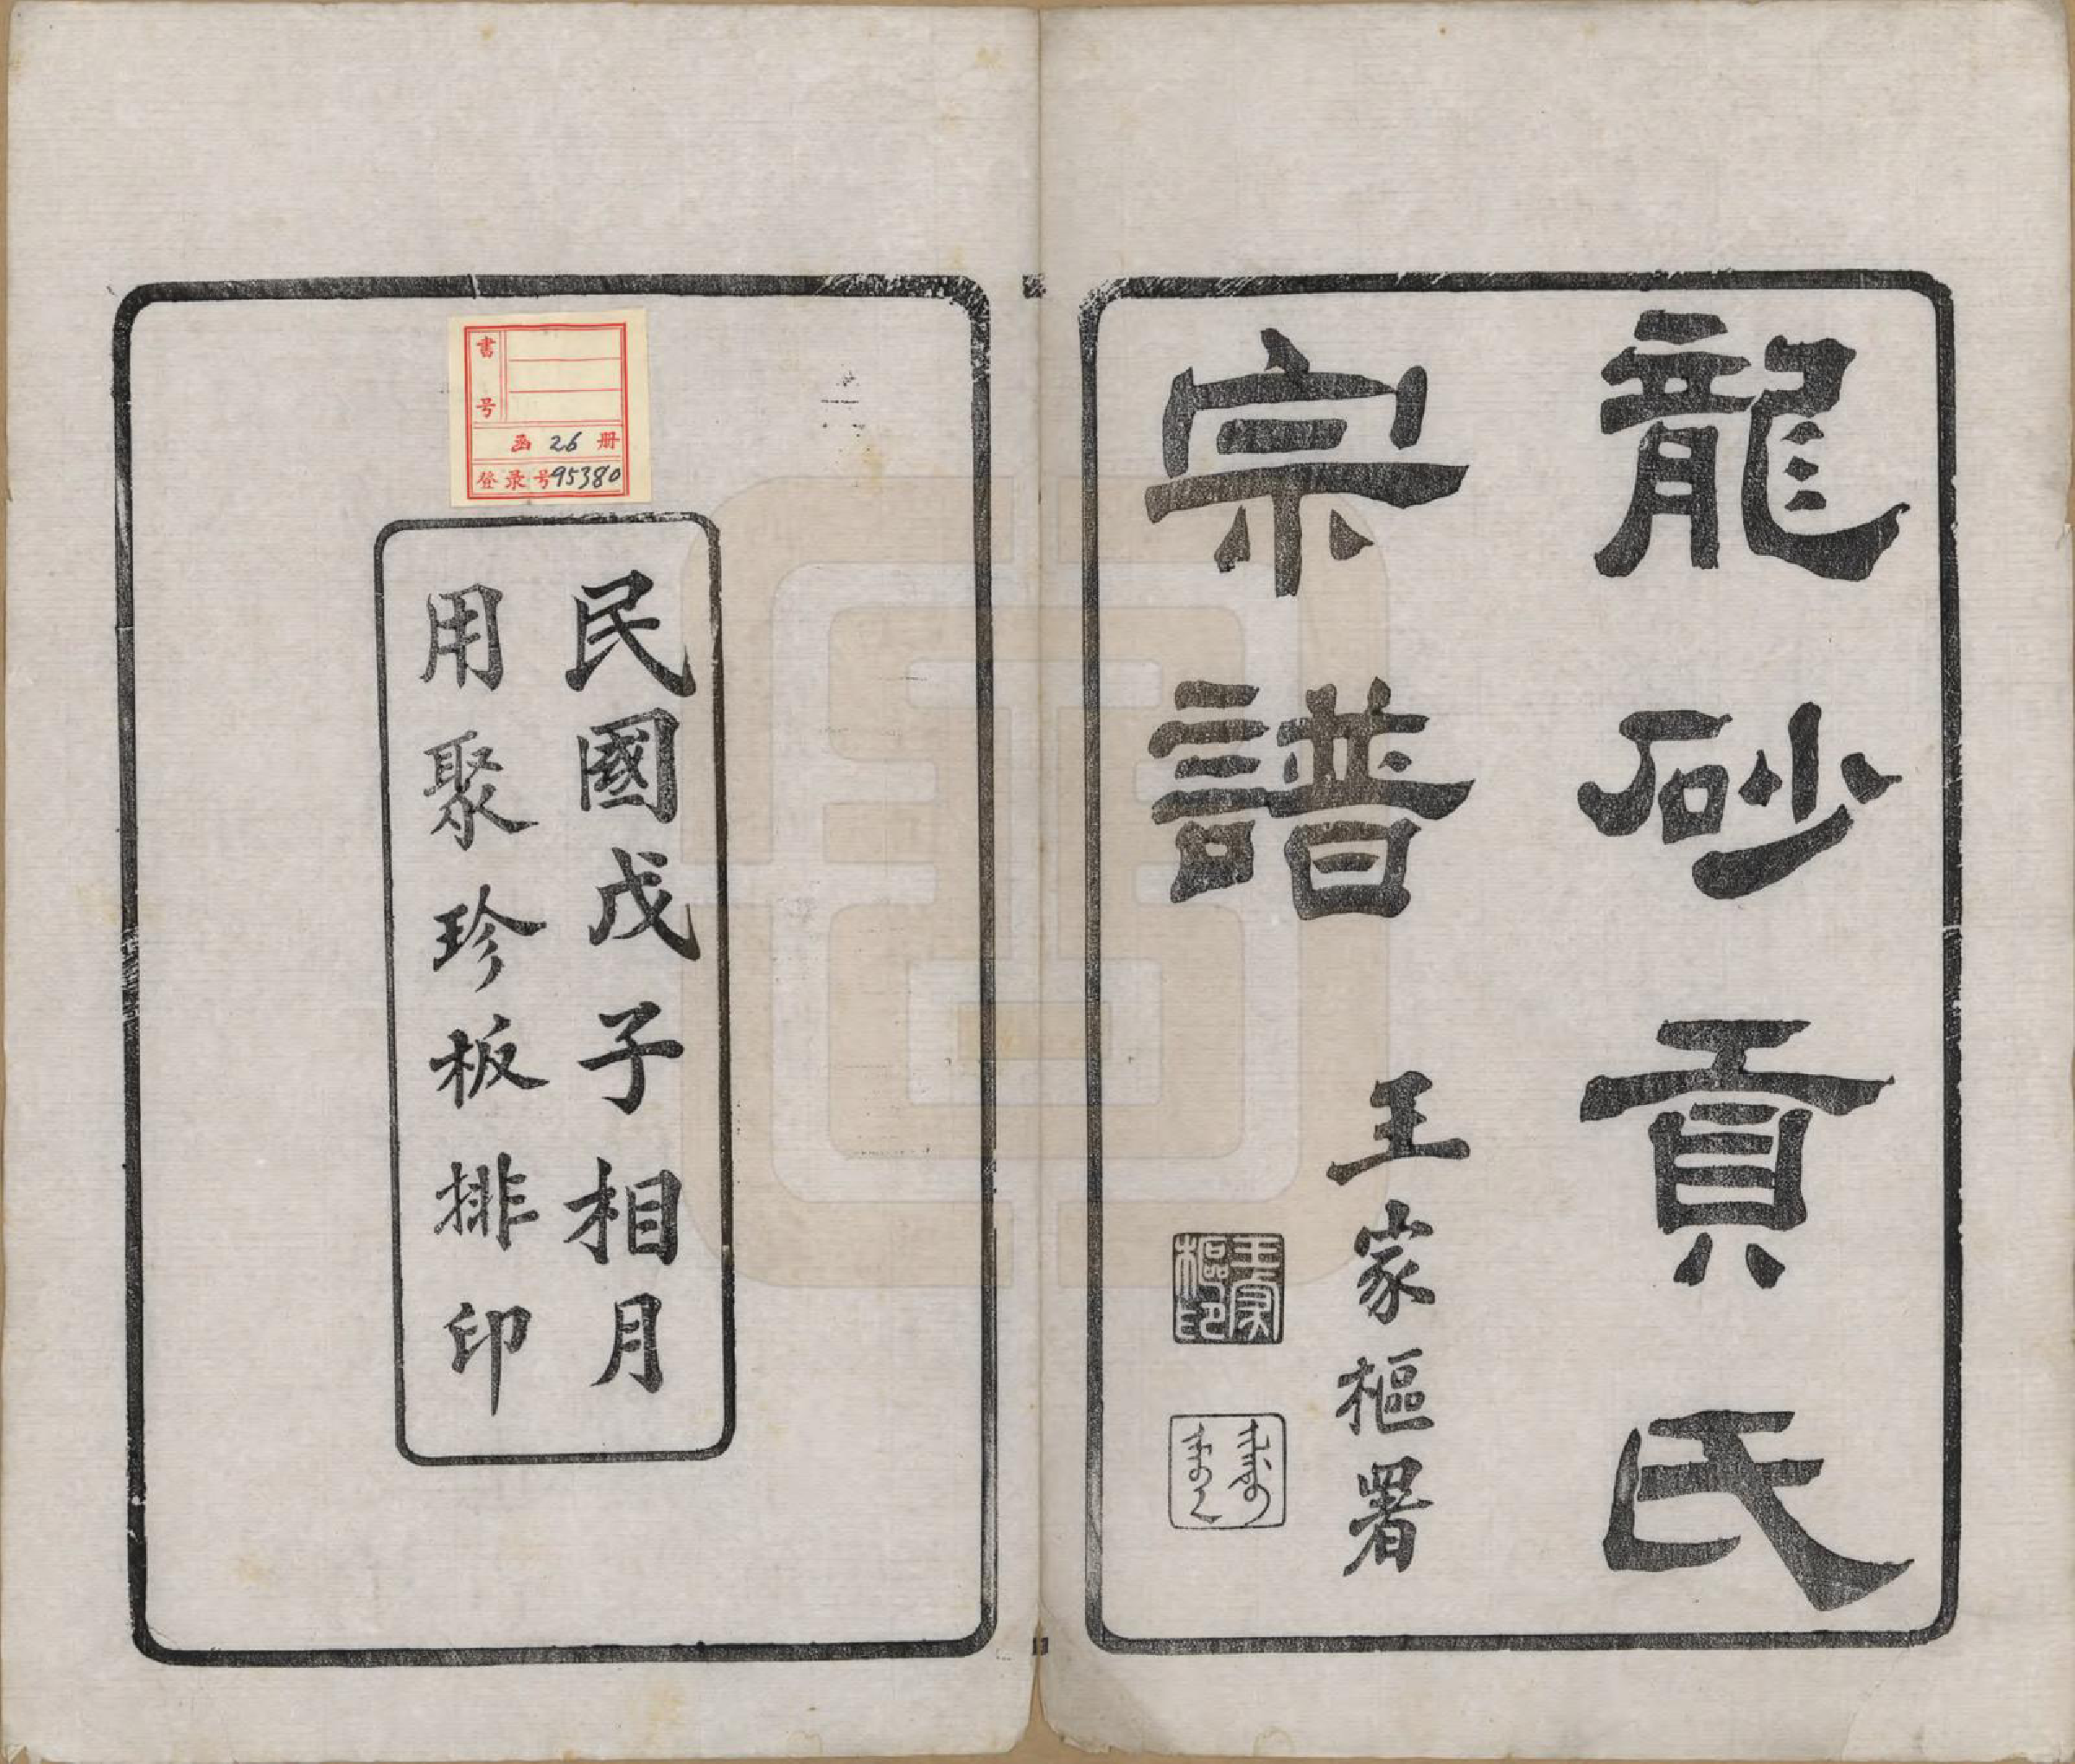 龍砂貢氏
宗譜
王家樞署
王家樞印
民國戊子相月
用聚珍板排印
書号
函 26 册
登录号 95380